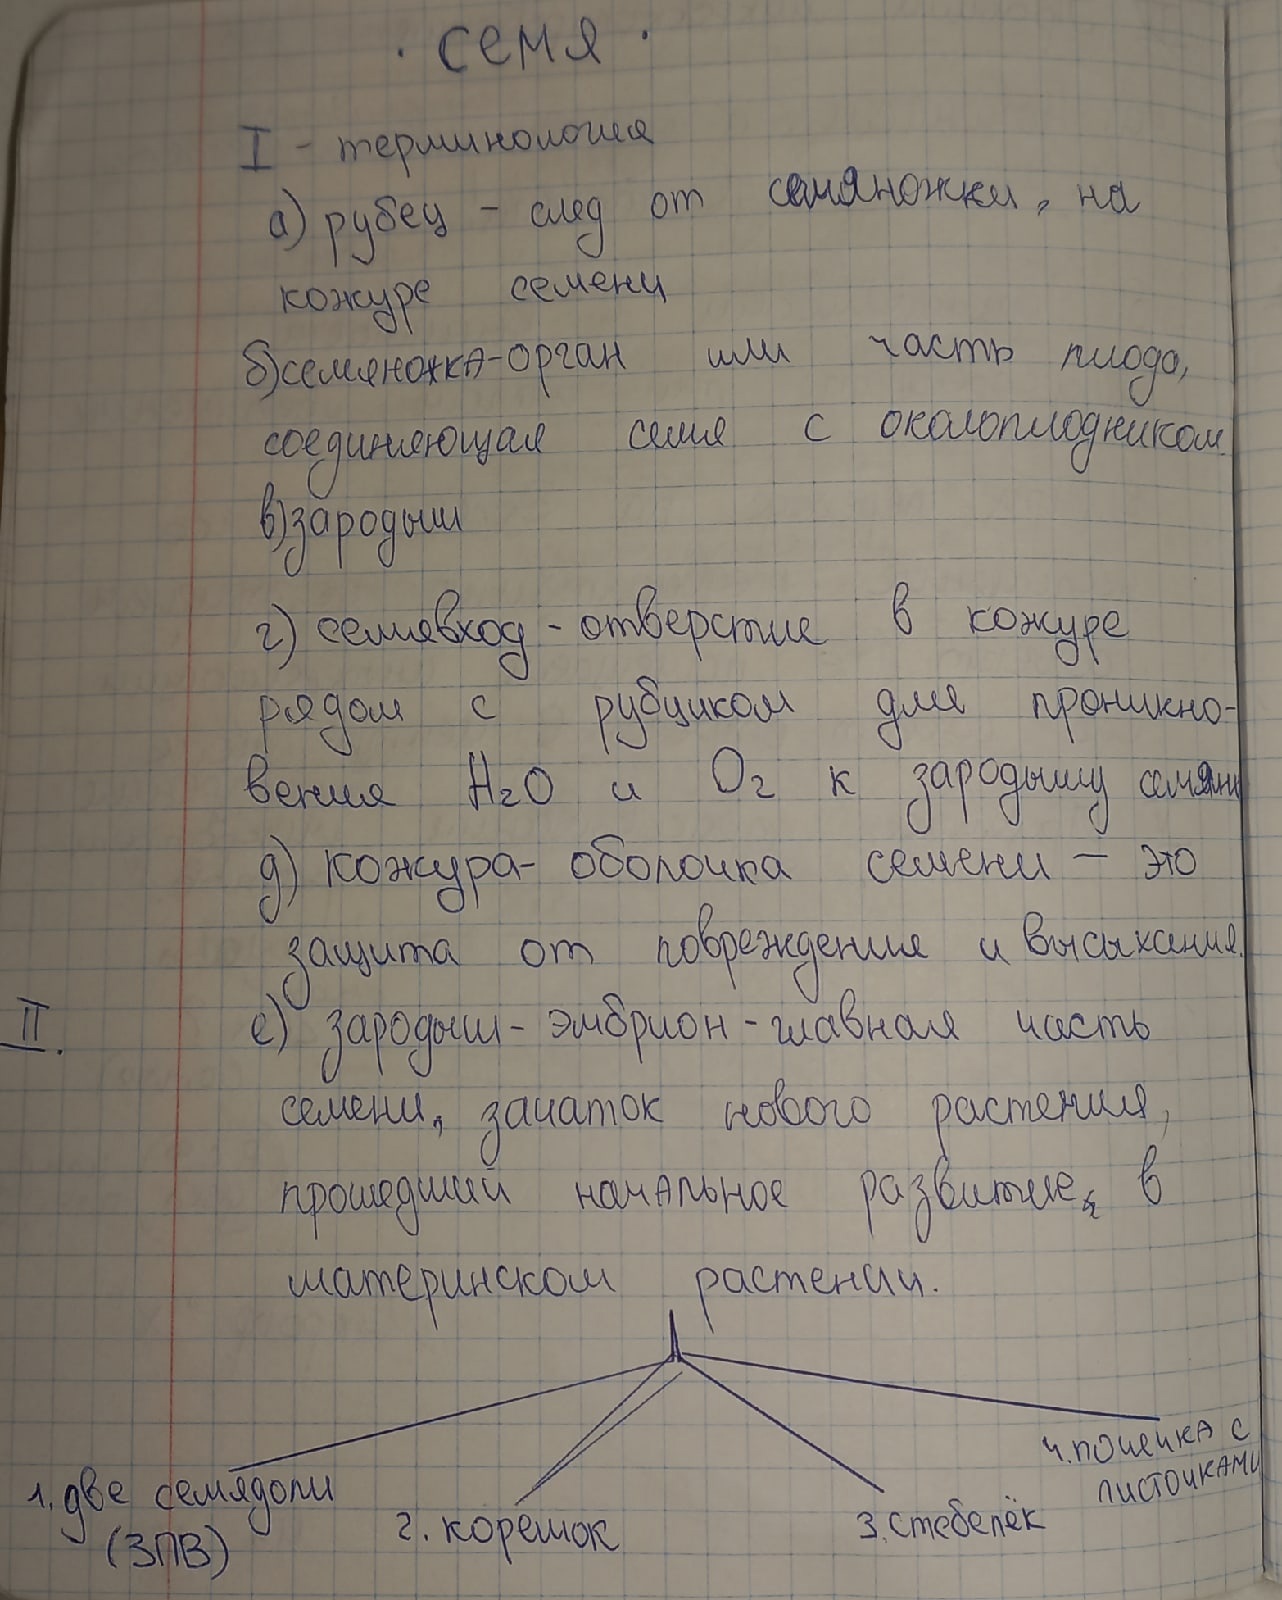 · семя ·
I - терминология
а) рубец - след от семяножки, на
кожуре семени
б) семяножка - орган или часть плода,
соединяющая семя с околоплодником.
в) зародыш
г) семявход - отверстие в кожуре
рядом с рубциком для проникно-
вения H₂O и O₂ к зародышу
д) кожура - оболочка семени - это
защита от повреждения и высыхания.
II. е) зародыш - эмбрион - главная часть
семени, зачаток нового растения,
прошедший начальное развитие, в
материнском растении.
1. две семядоли
(ЗПВ)
2. корешок
3. стебелёк
4. почечка с
листочками